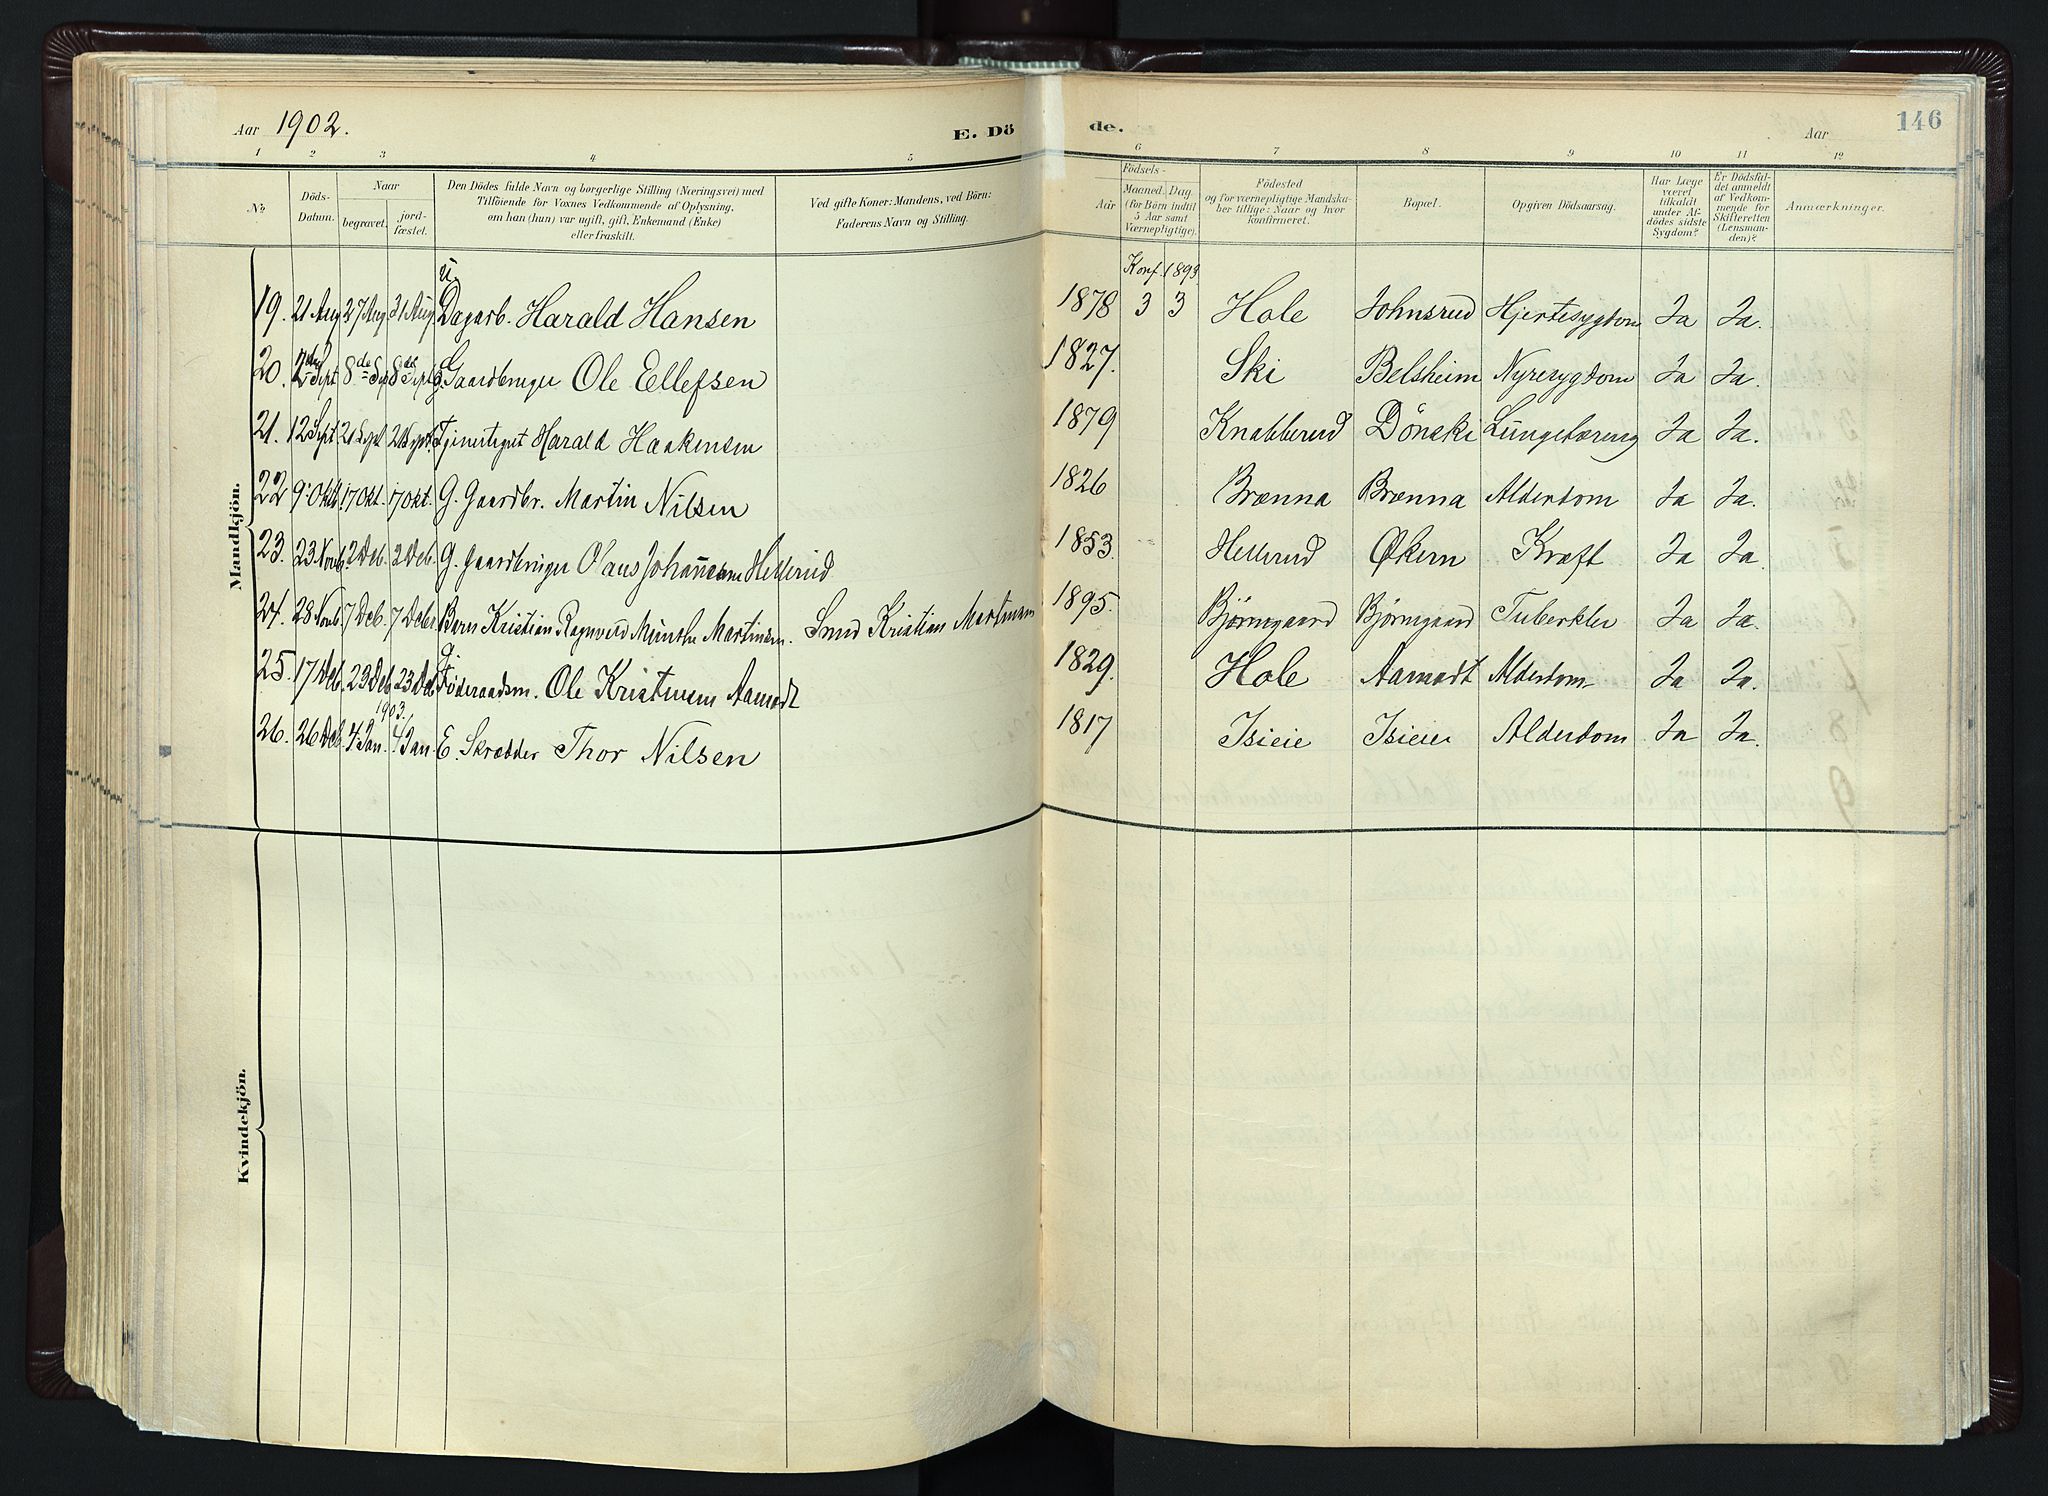 Aar 1902. E. Dö de. Aar 146
1 2 3 4 5 6 7 8 9 10 11 12
№ Döds-Datum. Naar begravet. jord-fæstet. Den Dödes fulde Navn og borgerlige Stilling (Næringsvei) med Tilföiende for Voxnes Vedkommende af Oplysning, om han (hun) var ugift, gift, Enkemand (Enke) eller fraskilt. Ved gifte Koner: Mandens, ved Börn: Faderens Navn og Stilling. Födsels- Aar Maaned. Dag. (for Börn indtil 5 Aar samt Værnepligtige). Födested og for værnepligtige Mandskaber tillige: Naar og hvor konfirmeret. Bopæl. Opgiven Dödsaarsag. Har Læge været tilkaldt under Afdödes sidste Sygdom? Er Dödsfaldet anmeldt af Vedkommende for Skifteretten (Lensmanden)? Anmærkninger.
Mandkjön.
u. Konf. 1893
19. 21 Aug 27 Aug 31 Aug Dagarb. Harald Hansen 1878 3 3 Hole Johnsrud Hjertesygdom Ja Ja.
20. 2den Sept 8de Sep 8de Sept G. Gaardbruger Ole Ellefsen 1827. Ski Belsheim Nyresygdom Ja Ja.
21. 12 Sept 21 Sept 21 Sept. Tjenestegut Harald Haakensen 1879 Knabberud Dönski Lungetæring Ja Ja.
22 9. Oktb. 17 Okt. 17 Okt. G. Gaardbr. Martin Nilsen 1826 Brænna Brænna Alderdom Ja Ja.
23. 23 Novb. 2 Deb. 2 Deb. G. Gaardbruger Olaus Johannesen Hellerud 1853. Hellerud Økern Kræft Ja Ja.
24. 28 Novb. 7 Deb. 7 Debr Barn Kristian Ragnvald Münster Martinsen. Smed Kristian Martinsen 1895. Bjørnegaard Bjørnegaard Tuberkler Ja Ja.
25. 17 Deb. 23 Deb 23 Deb G. Føderaadsm. Ole Kristensen Aamodt 1829. Hole Aamodt Alderdom Ja Ja.
1903.
26. 26 Deb 4. Jan. 4 Jan E. Skrædder Thor Nilsen 1817 Isieie Isieie Alderdom Ja Ja.
Kvindekjön.